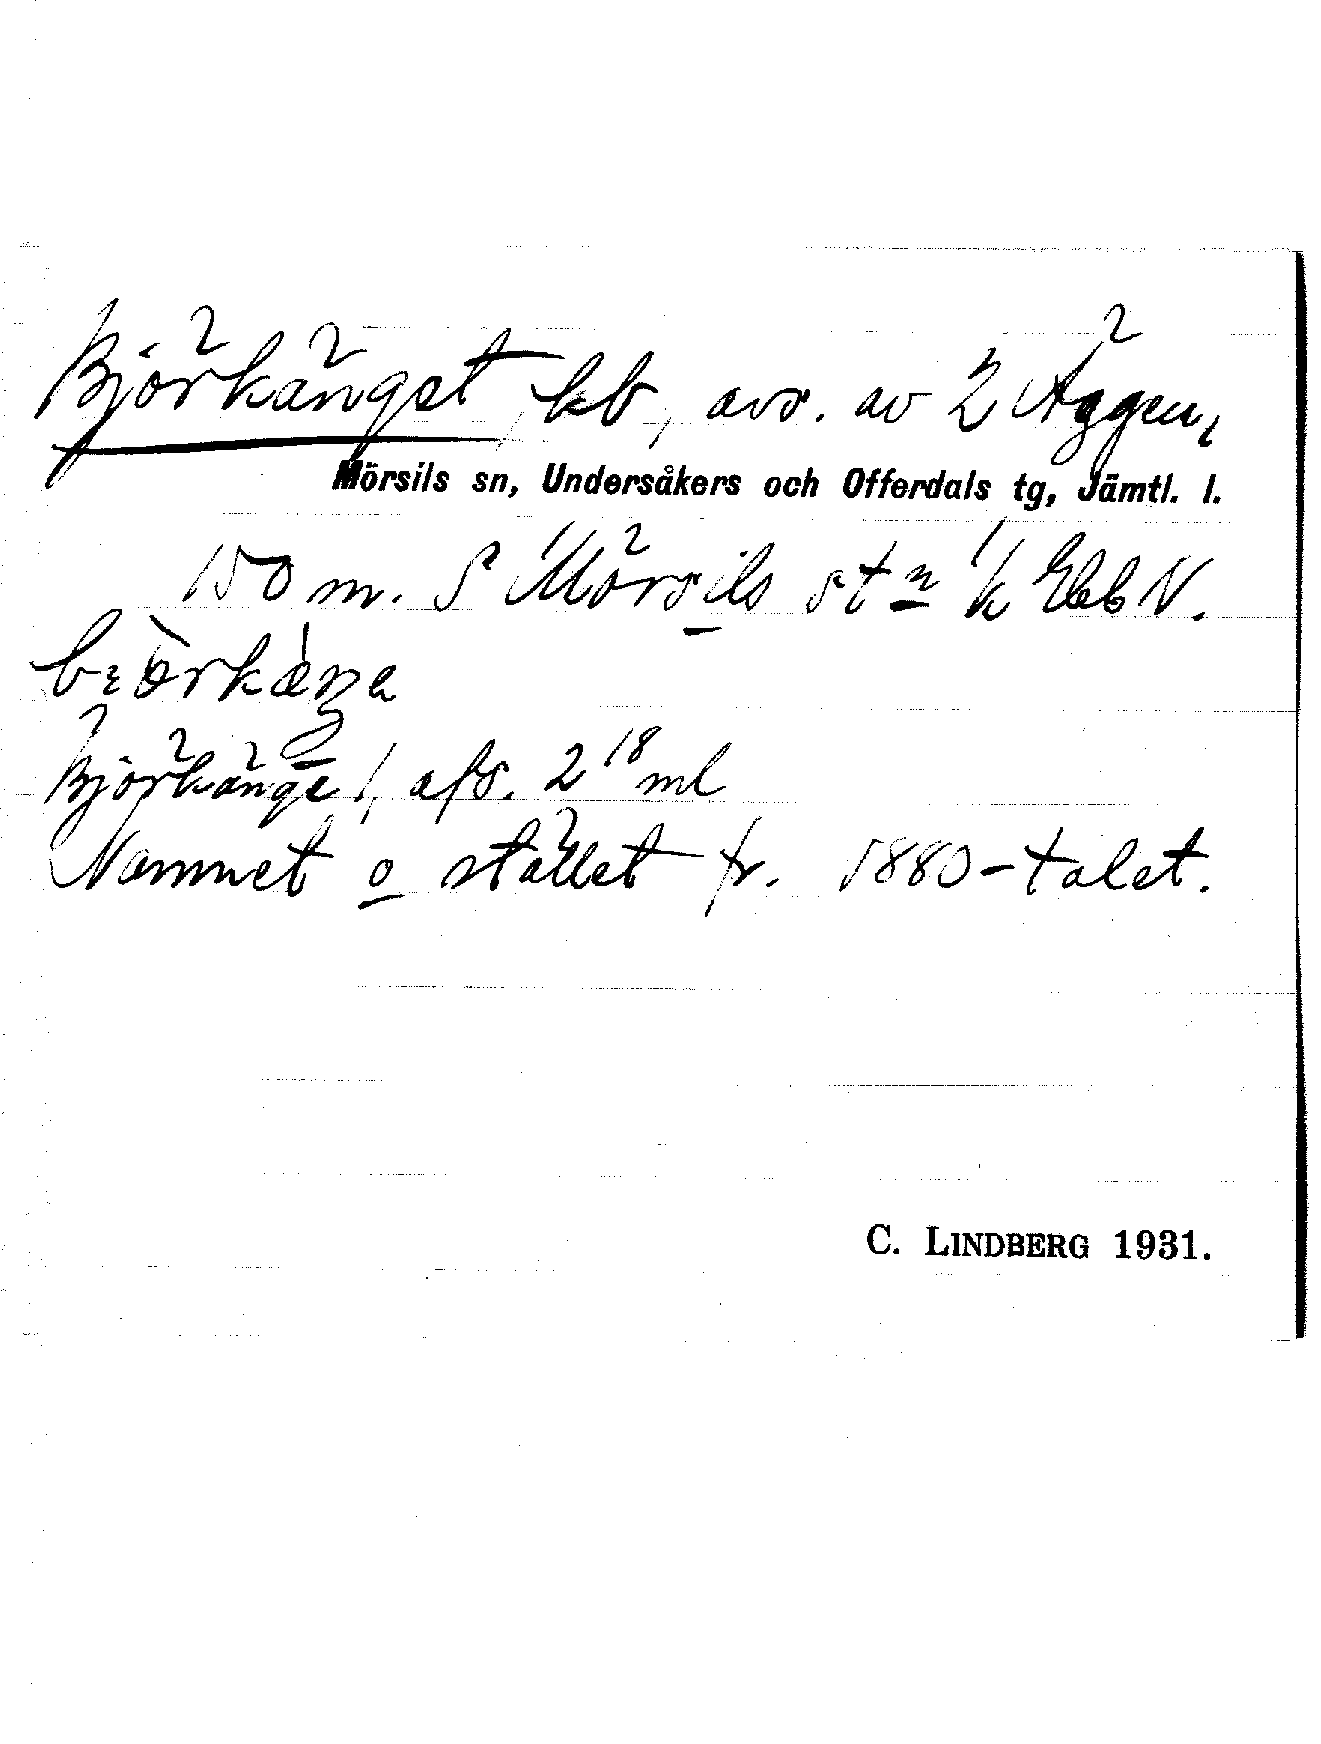 Björkänget, kb, avs. av 2 Äggen,
Mörsils sn, Undersåkers och Offerdals tg, Jämtl. l.
150 m. S Mörsils stn k Ebb V.
Björkänge 1, afs. 2 18 ml
Namnet o stället fr. 1880-talet.
C. LINDBERG 1931.